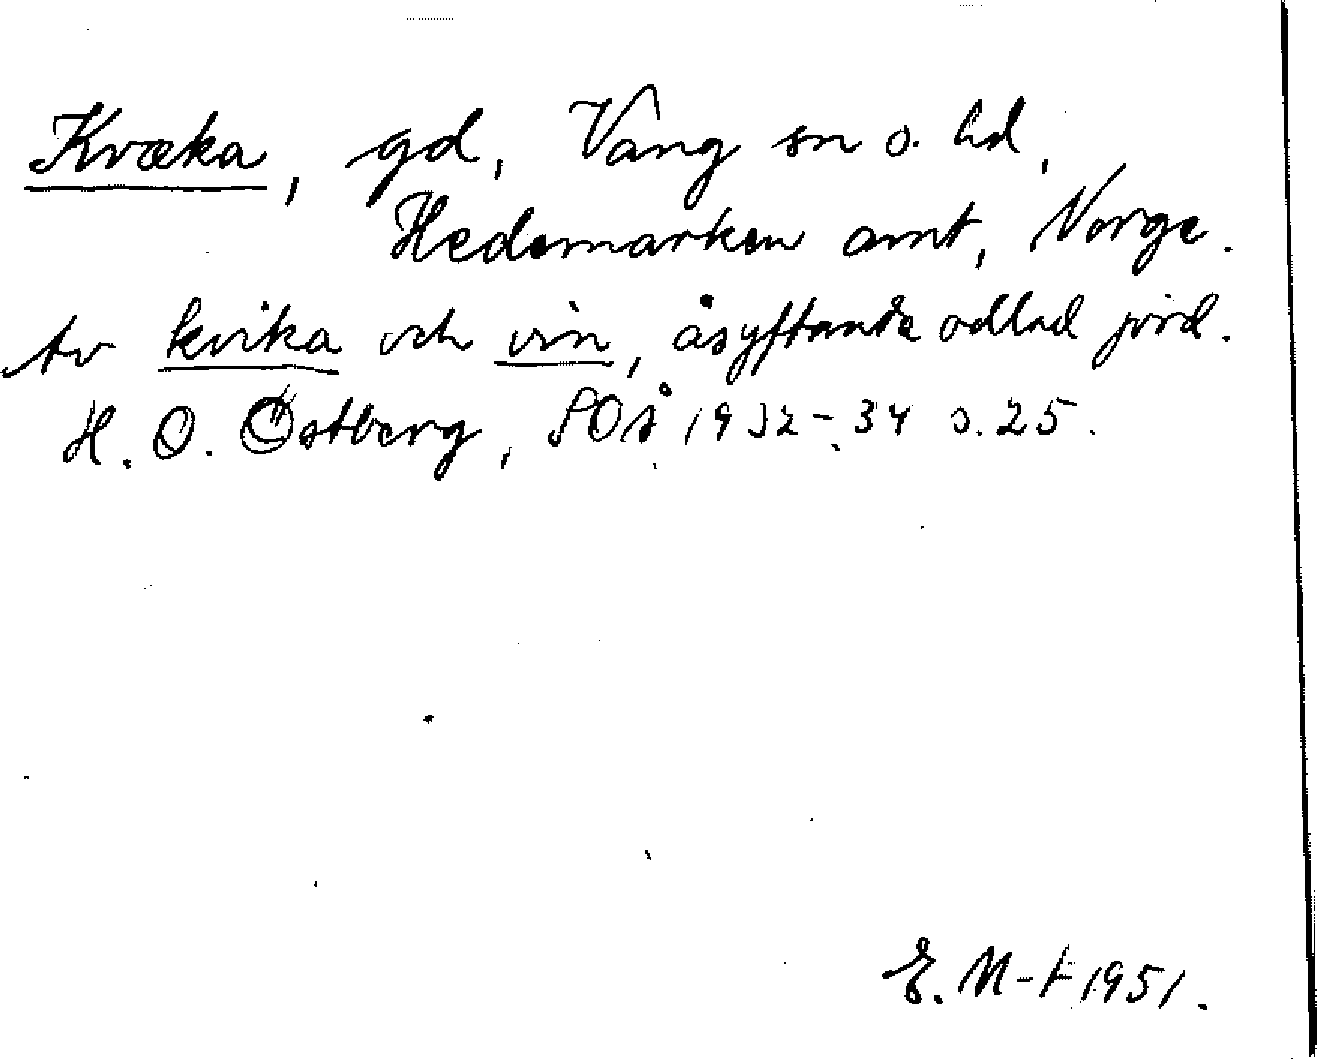 Kvæka, gd, Vang sn o. hd,
Hedemarken amt, Norge.
Av kvika och vin, åsyftande odlad jord.
H. O. Östberg, SOÅ 1932-34 s. 25.
E. M-t 1951.